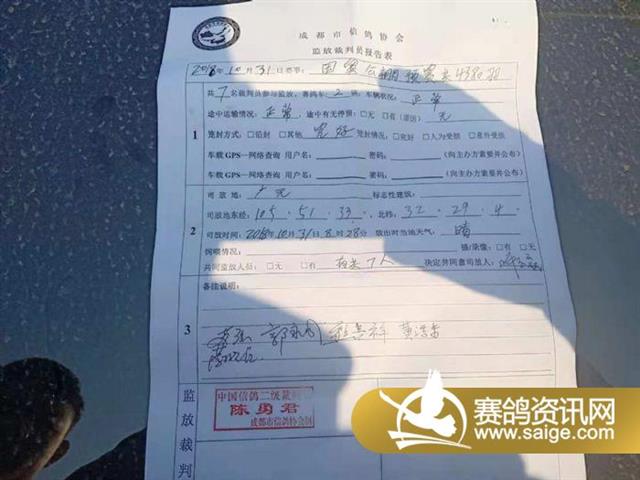 成都市信鸽协会
监放裁判员报告表
2018年10月31日赛事: 公棚预赛共4380羽
共 7 名裁判员参与监放, 赛鸽车 2 辆, 车辆状况: 正常
途中运输情况: 正常 途中有无停顿: □无 □有(原因) 无
1
笼封方式: □铅封 □其他 完好 笼封情况: □完好 □人为受损 □意外受损
车载 GPS—网络查询 用户名: 密码: (向主办方索要并公布)
车载 GPS—网络查询 用户名: 密码: (向主办方索要并公布)
司 放 地: 广元 标志性建筑:
司放地东经: 105 . 51 . 33 北纬: 32 . 29 . 4
2
司放时间: 2018年10月31日8时28分 放出时当地天气: 晴
饲喂情况: 摄/录像: □有 □无
共同监放人员: □无 □有 7人 决定并同意司放人:
备注说明:
3
监放裁判
中国信鸽二级裁判
陈勇君
成都市信鸽协会
赛鸽资讯网
www.saige.com